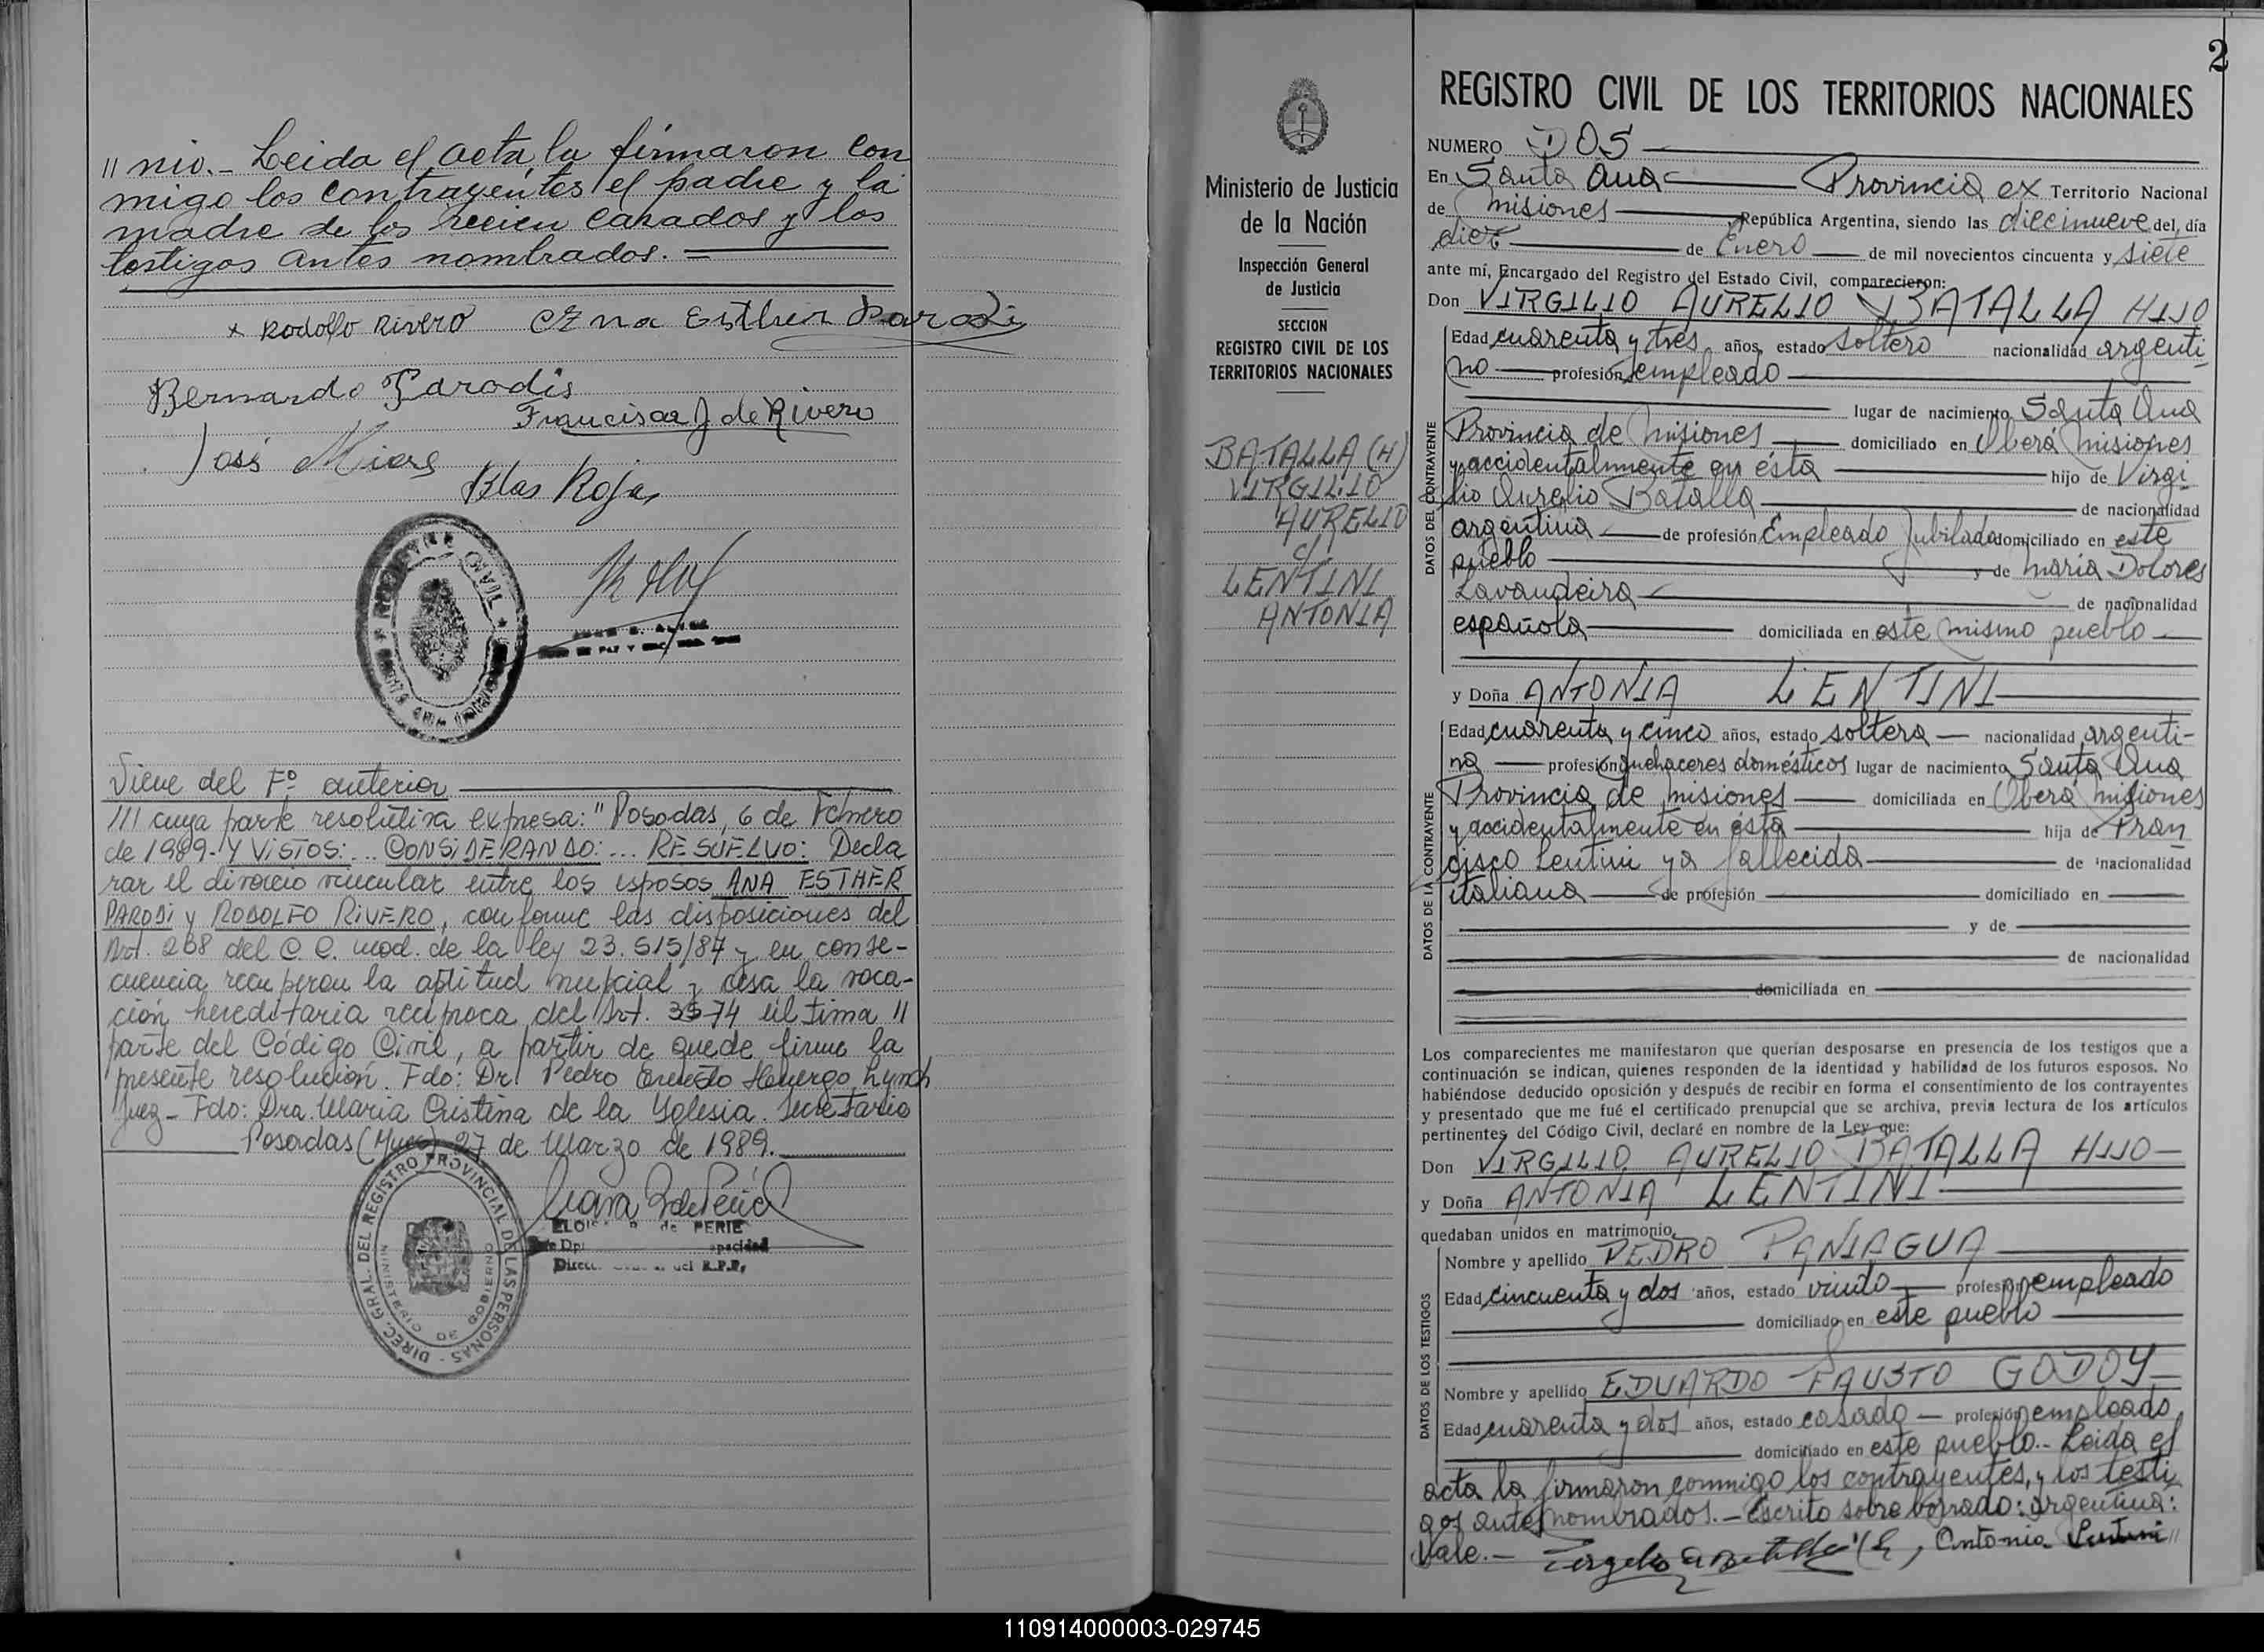 " nio.- Leida el acta la firmaron con
migo los contrayentes el padre y la
madre de los recien casados y los
testigos antes nombrados. =
x Rodolfo Rivero Ana Esther Parodi
Bernardo Parodis
Francisca J de Rivero
José
Blas Rojas
REGISTRO CIVIL
Viene del Fº anterior
/// cuya parte resolutiva expresa: "Posadas, 6 de Febrero
de 1989.- Y VISTOS: ... CONSIDERANDO: ... RESUELVO: Decla
rar el divorcio vincular entre los esposos ANA ESTHER
PARODI y RODOLFO RIVERO, conforme las disposiciones del
Art. 238 del C. C. mod. de la ley 23.515/87 y en conse-
cuencia recuperan la aptitud nupcial y cesa la voca-
ción hereditaria recíproca del Art. 3574 última //
parte del Código Civil, a partir de quede firme la
presente resolución. Fdo: Dr. Pedro Ernesto Lynch
Juez - Fdo: Dra. Maria Cristina de la Yglesia. Secretario
Posadas (Mnes) 27 de Marzo de 1989.
DIREC. GRAL. DEL REGISTRO PROVINCIAL DE LAS PERSONAS -
MINISTERIO DE GOBIERNO
de PERIE
R.P.P.
2
Ministerio de Justicia
de la Nación
Inspección General
de Justicia
SECCION
REGISTRO CIVIL DE LOS
TERRITORIOS NACIONALES
BATALLA (H)
VIRGILIO
AURELIO
c/
LENTINI
ANTONIA
REGISTRO CIVIL DE LOS TERRITORIOS NACIONALES
NUMERO DOS
En Santa Ana Provincia ex Territorio Nacional
de Misiones República Argentina, siendo las diecinueve del día
diez de Enero de mil novecientos cincuenta y siete
ante mí, Encargado del Registro del Estado Civil, comparecieron:
Don VIRGILIO AURELIO BATALLA HIJO
DATOS DEL CONTRAYENTE
Edad cuarenta y tres años, estado soltero nacionalidad argenti-
no profesión empleado
lugar de nacimiento Santa Ana
Provincia de Misiones domiciliado en Oberá Misiones
y accidentalmente en ésta hijo de Virgi
lio Aurelio Batalla de nacionalidad
argentina de profesión Empleado Jubilado domiciliado en este
pueblo y de María Dolores
Lavandeira de nacionalidad
española domiciliada en este mismo pueblo
y Doña ANTONIA LENTINI
DATOS DE LA CONTRAYENTE
Edad cuarenta y cinco años, estado soltera nacionalidad argenti-
na profesión quehaceres domésticos lugar de nacimiento Santa Ana
Provincia de Misiones domiciliada en Oberá Misiones
y accidentalmente en ésta hija de Fran
cisca Lentini ya fallecida de nacionalidad
italiana de profesión domiciliado en
y de
de nacionalidad
domiciliada en
Los comparecientes me manifestaron que querían desposarse en presencia de los testigos que a
continuación se indican, quienes responden de la identidad y habilidad de los futuros esposos. No
habiéndose deducido oposición y después de recibir en forma el consentimiento de los contrayentes
y presentado que me fué el certificado prenupcial que se archiva, previa lectura de los artículos
pertinentes del Código Civil, declaré en nombre de la Ley que:
Don VIRGILIO AURELIO BATALLA HIJO
y Doña ANTONIA LENTINI
quedaban unidos en matrimonio.
DATOS DE LOS TESTIGOS
Nombre y apellido PEDRO PANIAGUA
Edad cincuenta y dos años, estado viudo profesión empleado
domiciliado en este pueblo
Nombre y apellido EDUARDO FAUSTO GODOY
Edad cuarenta y dos años, estado casado profesión empleado
domiciliado en este pueblo.- Leida el
acta la firmaron conmigo los contrayentes, y los testi
gos antes nombrados.- Escrito sobre borrado: argentina:
Vale.- Antonia Lentini //
110914000003-029745